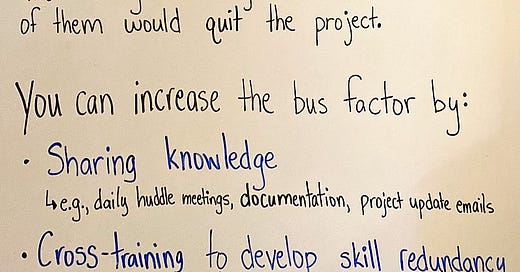 of them would quit the project.
You can increase the bus factor by:
• Sharing knowledge
↳e.g., daily huddle meetings, documentation, project update emails
• Cross-training to develop skill redundancy